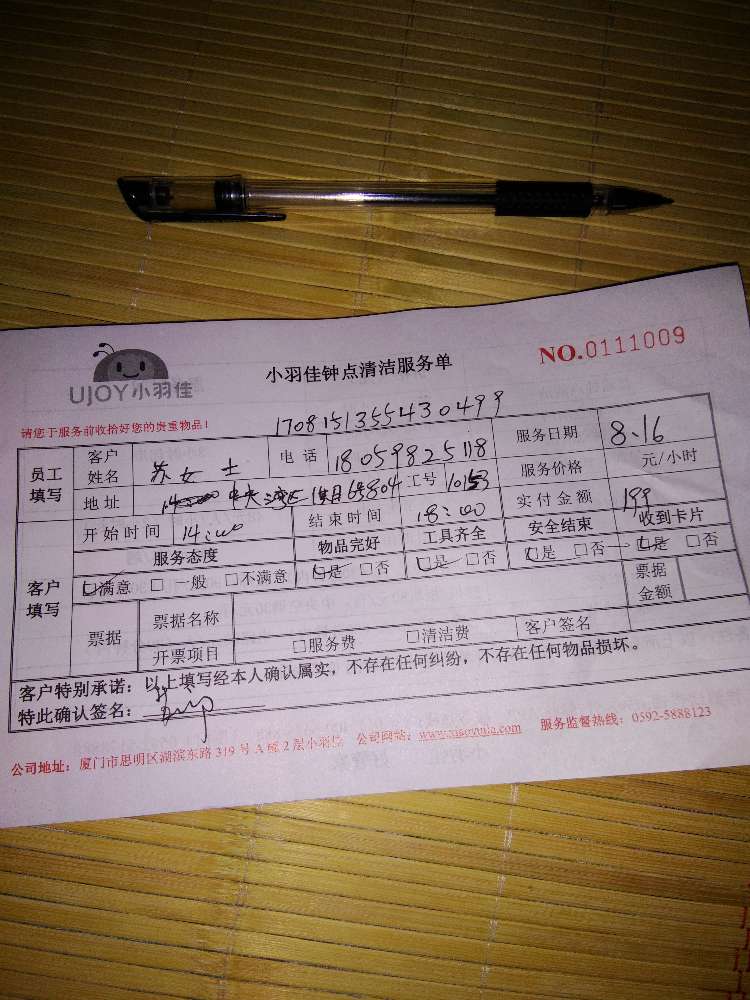 UJOY小羽佳
小羽佳钟点清洁服务单
NO.0111009
请您于服务前收拾好您的贵重物品！
17081513554430499
员工填写 客户姓名 苏女士 电话 18059825118 服务日期 8.16
地址 工号 10153 服务价格 元/小时
客户填写 开始时间 14:00 结束时间 18:00 实付金额 199
服务态度 物品完好 工具齐全 安全结束 收到卡片
☑满意 □一般 □不满意 ☑是 □否 ☑是 □否 ☑是 □否 ☑是 □否
票据 票据名称 票据金额
开票项目 □服务费 □清洁费 客户签名
客户特别承诺：以上填写经本人确认属实，不存在任何纠纷，不存在任何物品损坏。
特此确认签名：
公司地址：厦门市思明区湖滨东路319号A幢2层小羽佳 公司网站：www.xiaoyujia.com 服务监督热线：0592-5888123